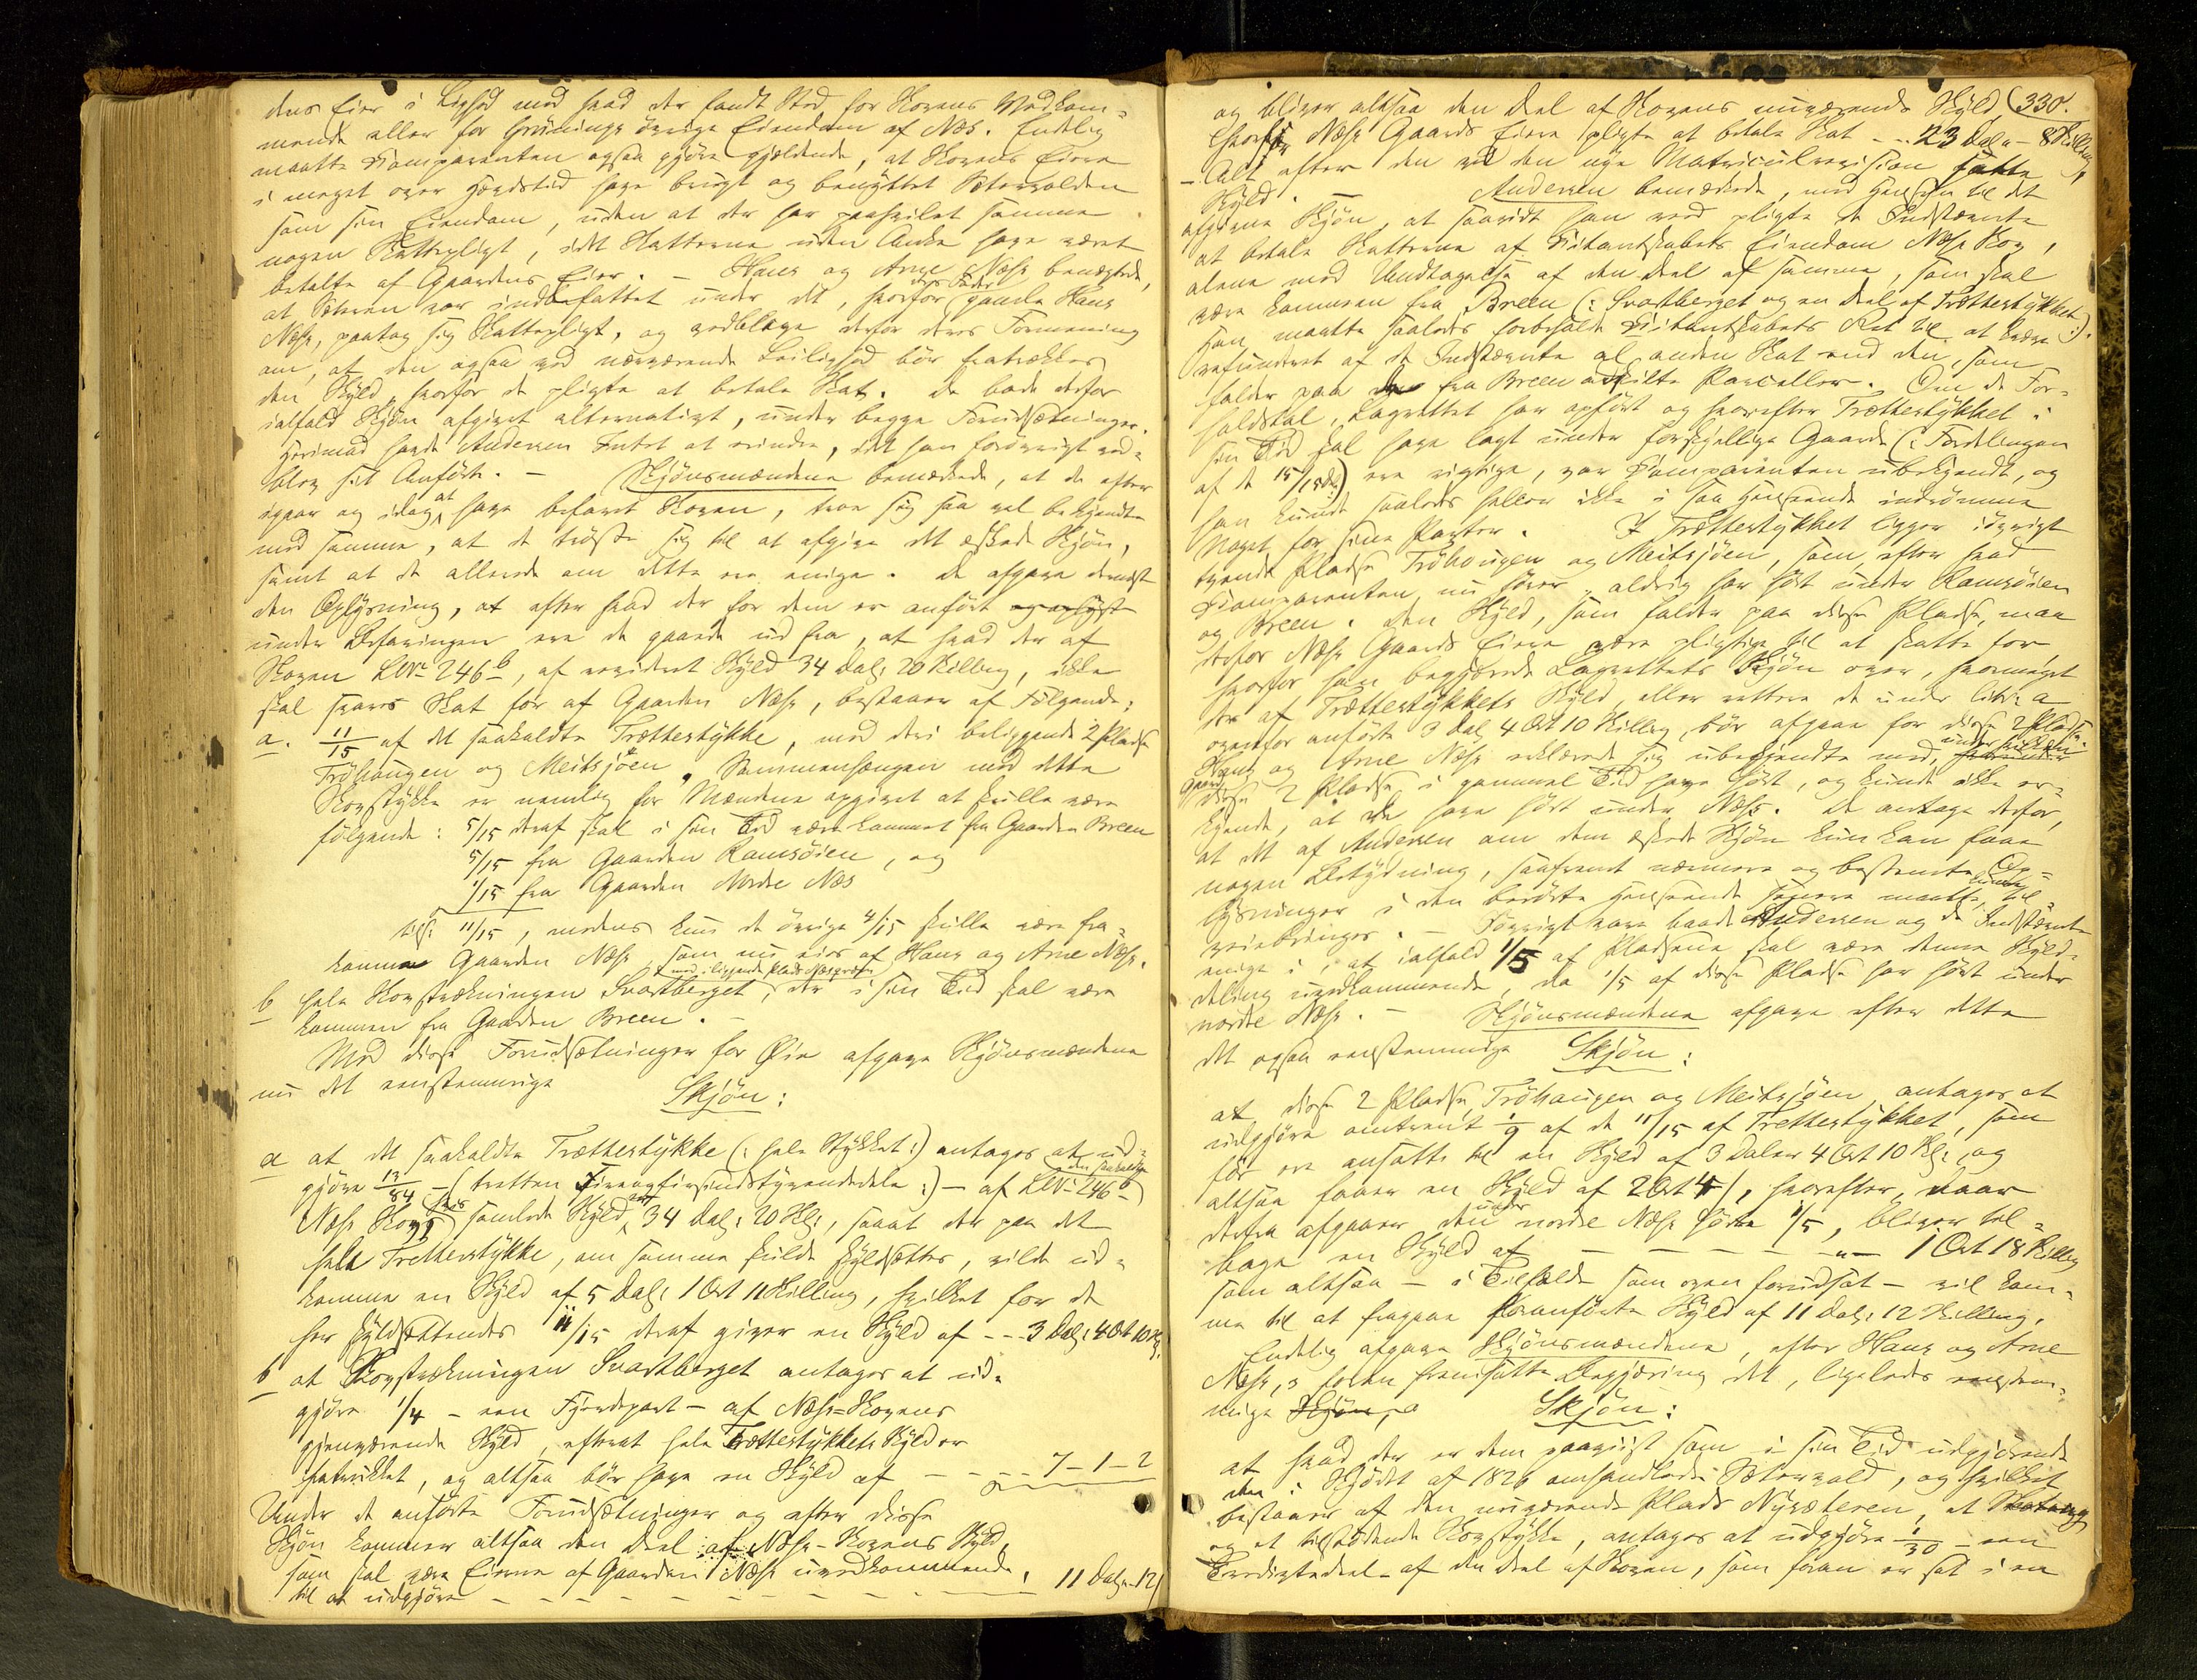 dens Eier i Lighed med hvad der fandt Sted for Skovens Vedkom-
mende eller for Grünings övrige Eiendom af Næs. Endelig
maatte Komparenten ogsaa gjöre gjældende, at Skovens Eiere
i meget over Hævdstid have brugt og benyttet Sætervolden
som sin Eiendom, uden at der har paahvilet samme
nogen Skattepligt, idet Skatterne uden Anke have været
betalte af Gaardens Eier. - Hans og Arne Næss benægtede,
at Sæteren var indbefattet under det, hvorfor deres Fader gamle Hans
Næss, paatog sig Skattepligt, og vedbleve derfor deres Formening
om, at den ogsaa ved nærværende Leilighed bör fratrækkes
den Skyld, hvorfor de pligte at betale Skat. De bade derfor
ialfald Skjön afgivet alternativt, under begge Forudsætninger.
Herimod havde Andersen Intet at erindre, idet han forövrigt ved-
blev sit Anförte. - Skjönsmændene bemærkede, at de efter
igaar og idag at have befaret Skoven, troe sig saa vel bekjendte
med samme, at de tröste sig til at afgive det æskede Skjön,
samt at de allerede om dette ere enige. De afgave dernæst
den Oplysning, at efter hvad der for dem er anfört og oplyst
under Befaringen ere de gaaede ud fra, at hvad der af
Skoven LNr. 246b, af revideret Skyld 34 Dal: 20 Skilling, ikke
skal svares Skat for af Gaarden Næss, bestaaer af Fölgende:
a. 11/15 af det saakaldte Trættestykke, med deri beliggende 2 Pladse
Tröhaugen og Meitsjöen. Sammenhængen med dette
Skovstykke er nemlig for Mændene opgivet at skulle være
fölgende: 5/15 deraf skal i sin Tid være kommet fra Gaarden Breen
5/15 fra Gaarden Ramsöien, og
1/15 fra Gaarden Nordre Næs
tils: 11/15, medens kun de övrige 4/15 skulle være fra-
komme Gaarden Næss, som nu eies af Hans og Arne Næss.
b hele Skovstrækningen Svartberget, med iliggende Plads der i sin Tid skal være
kommen fra Gaarden Breen. -
Med disse Forudsætninger for Öie afgave Skjönsmændene
nu det eenstemmige Skjön:
a at det saakaldte Trættestykke (: hele Stykket :) antages at ud-
gjöre 13/84 - (tretten Fireogfirsindstyvendedele :) - af den saakaldte LNr. 246b
Næss Skovs samlede Skyld, 34 Dal: 20 Sk:, saaat der paa det
hele Trettestykke, om samme skulde skyldsættes, vilde ud-
komme en Skyld af 5 Dal: 1 Ort 11 Skilling, hvilket for de
her skyldsættendes 11/15 deraf giver en Skyld af - - 3 Dal: 4 Ort 10 Sk.
b at Skovstrækningen Svartberget antages at ud-
gjöre 1/4 - een Fjerdepart - af Næss-Skovens
gjenværende Skyld, efterat hele Trættestykkets Skyld er
fratrukket, og altsaa bör have en Skyld af - - - 7 - 1 - 2
Under de anförte Forudsætninger og efter disse
Skjön kommer altsaa den Deel af Næss-Skovens Skyld,
som skal være Eierne af Gaarden Næss uvedkommende,
til at udgjöre - - - - - - - - 11 Dal: - 12
330.
og bliver altsaa den Deel af Skovens nuværende Skyld
hvorfor Næss Gaards Eiere pligte at betale Skat - - 23 Dal: - 8 Skilling,
- Alt efter den ved den nye Matriculrevision satte
Skyld. - Andersen bemærkede, med Hensyn til det
afgivne Skjön, at saavidt han veed pligte de Indstævnte
at betale Skatterne af Eiendom Næss Skov,
alene med Undtagelse af den Deel af samme, som skal
være kommen fra Breen (: Svartberget og en Deel af Trættestykket :).
Han maatte saaledes forbeholde Ret til at kræve
refunderet af de Indstævnte al anden Skat end den, som
falder paa de fra Breen adskilte Parceller. Om de For-
holdstal, Lagrettet har opfört og hvorefter Trættestykket i
sin Tid skal have lagt under forskjellige Gaarde (: Fordelingen
af de 15/15 dele) ere rigtige, var Komparenten ubekjendt, og
han kunde saaledes heller ikke i saa Henseende indrömme
Noget for sine Parter. I Trættestykket ligger iövrigt
tvende Pladse Tröhougen og Meitsjöen, som, efter hvad
Komparenten nu hörer, aldrig har hört under Ramsöien
og Breen. Den Skyld, som falder paa disse Pladse, maa
derfor Næss Gaards Eiere være pligtige til at skatte for
hvorfor han begjærede Lagrettets Skjön over, hvormeget
der af Trættestykkets Skyld, eller rettere de under Litr: a
ovenfor anförte 3 Dal 4 Ort 10 Skilling, bör afgaae for disse 2 Pladse.
Hans og Arne Næss erklærede sig ubekjendte med, under hvilken
Gaard disse 2 Pladse i gammel Tid have hört, og kunde ikke er-
kjende, at de have hört under Næss. De antage derfor,
at det af Andersen om dem æskede Skjön kun kan faae
nogen Betydning, saafremt nærmere og bestemte Op-
lysninger i den berörte Henseende senere maatte kunne til-
veiebringes. - Iövrigt vare baade Andersen og de Indstævnte
enige i, at ialfald 1/5 af Pladsene skal være denne Skyld-
deling uvedkommende, da 1/5 af disse Pladse har hört under
nordre Næss. - Skjönsmændene afgave efter dette
det ogsaa eenstemmige Skjön:
at disse 2 Pladse, Tröhaugen og Meitsjöen, antages at
udgjöre omtrent 1/9 af de 11/15 af Trettestykket, som
för ere ansatte til en Skyld af 3 Daler 4 Ort 10 Sk:, og
altsaa faaer en Skyld af 2 Ort 4, hvorefter, naar
derfra afgaaer den under nordre Næss hörte 1/5, bliver til-
bage en Skyld af - - - - - - " - 1 Ort 18 Skilling
som altsaa - i Tilfælde som oven forudsat - vil kom-
me til at fragaae foranförte Skyld af 11 Dal: 12 Skilling.
Endelig afgave Skjönsmændene, efter Hans og Arne
Næss's foran fremsatte Begjæring det, ligeledes eenstem-
mige Skjön:
at hvad der er dem paaviist som i sin Tid udgjörende
den i Skjödet af 1826 omhandlede Sætervold, og hvilket
bestaaer af den nuværende Plads Nysæteren, at
og et tilstödende Skovstykke, antages at udgjöre 1/30 - een
Tredivtedeel - af den Deel af Skoven, som foran er sat i en